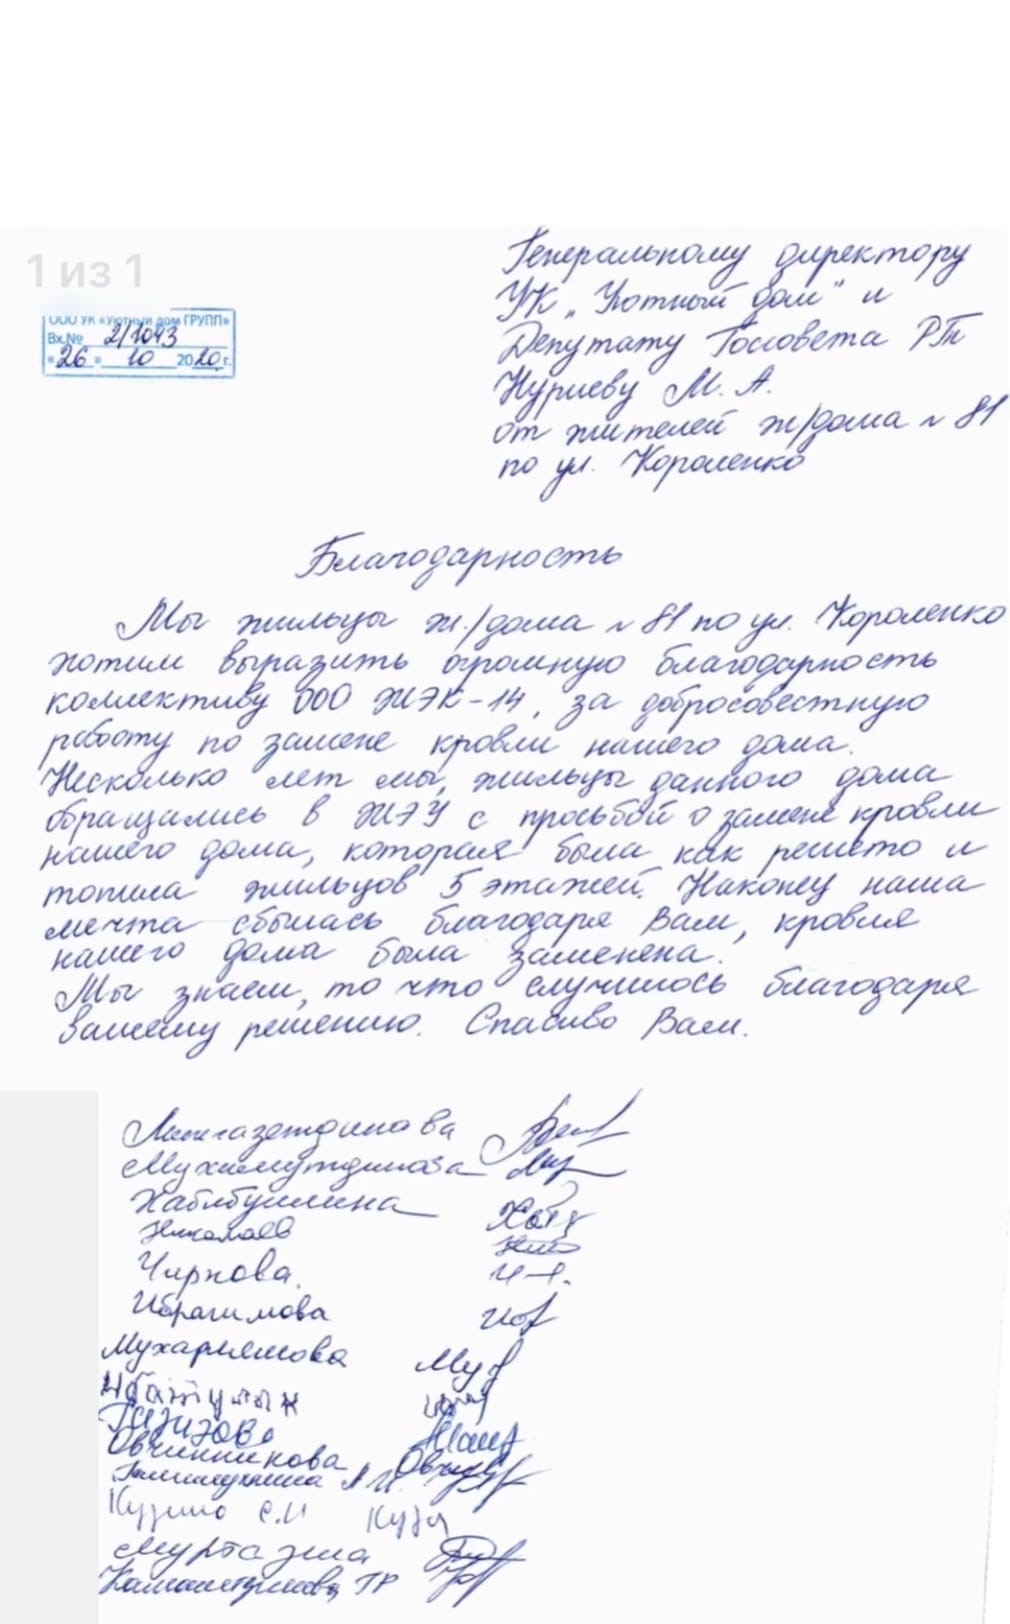 1 из 1
ООО УК «Уютный дом ГРУПП»
Вх.№ 2/1043
«26» 10 2020 г.
Генеральному директору
УК „Уютный дом" и
Депутату Госсовета РТ
Нуриеву М. А.
от жителей ж/дома № 81
по ул. Короленко
Благодарность
Мы жильцы ж./дома № 81 по ул. Короленко
хотим выразить огромную благодарность
коллективу ООО ЖЭК-14, за добросовестную
работу по замене кровли нашего дома.
Несколько лет мы, жильцы данного дома
обращались в ЖЭУ с просьбой о замене кровли
нашего дома, которая была как решето и
топила жильцов 5 этажей. Наконец наша
мечта сбылась благодаря Вам, кровля
нашего дома была заменена.
Мы знаем, то что случилось благодаря
вашему решению. Спасибо Вам.
Мухаметдинова
Хабибуллина
Николаев
Чиркова.
Ибрагимова
Мухарлямова
Ибатуллин
Газизова
Овчинникова
С.И
Муртазина
ГР